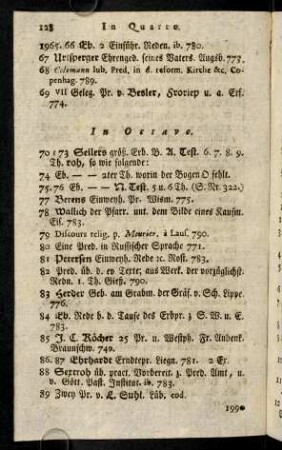 128 In Quarto.
1965. 66 Eb. 2 Einführ. Reden. ib. 780.
67 Urlsperger Ehrenged. seines Vaters. Augsb. 773.
68 Colemann lub. Pred. in d. reform. Kirche &c. Co-
penhag. 789.
69 VII Geleg. Pr. v. Besler, Froriep u. a. Erf.
774.
In Octavo.
70 : 73 Seilers größ. Erb. B. A. Test. 6. 7. 8. 9.
Th. roh, so wie folgende:
74 Eb. — — 2ter Th. worin der Bogen O fehlt.
75. 76 Eb. — — N. Test. 5 u. 6 Th. (S. Nr. 322.)
77 Berens Einweyh. Pr. Wism. 775.
78 Wallich der Pfarr. unt. dem Bilde eines Kaufm.
Eis. 783.
79 Discours relig. p. Mourier, à Laus. 790.
80 Eine Pred. in Russischer Sprache 771.
81 Petersen Einweyh. Rede ec. Rost. 783.
82 Pred. üb. d. ev Texte, aus Werk. der vorzüglichst.
Redn. 1. Th. Gieß. 790.
83 Herder Geb. am Grabm. der Gräf. v. Sch. Lippe.
776.
84 Eb. Rede h. d. Taufe des Erbpr. z S. W. u. E.
783.
85 J. C. Köcher 25 Pr. u. Westph. Fr. Andenk.
Braunschw. 740.
86. 87 Ehrhardt Erndtepr. Liegn. 781. 2 Ex.
88 Sextroh üb. pract. Vorbereit. z. Pred. Amt, u.
v. Gött. Past. Institut. ib. 783.
89 Zwey Pr. v. L. Suhl. Lüb. eod.
1990